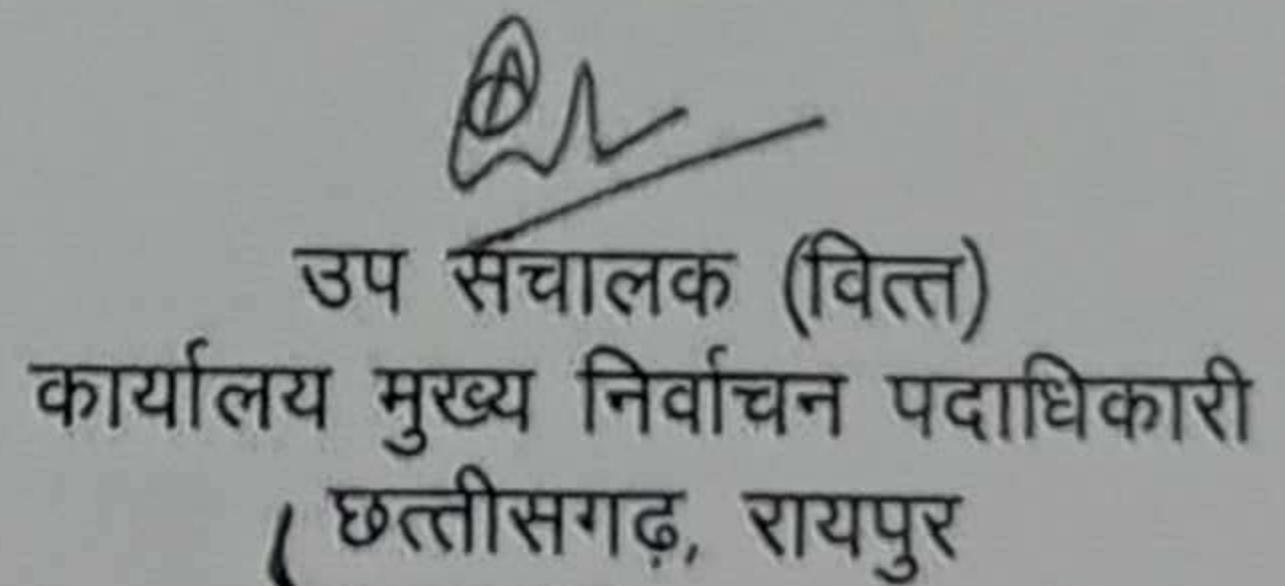 उप संचालक (वित्त)
कार्यालय मुख्य निर्वाचन पदाधिकारी
छत्तीसगढ़, रायपुर